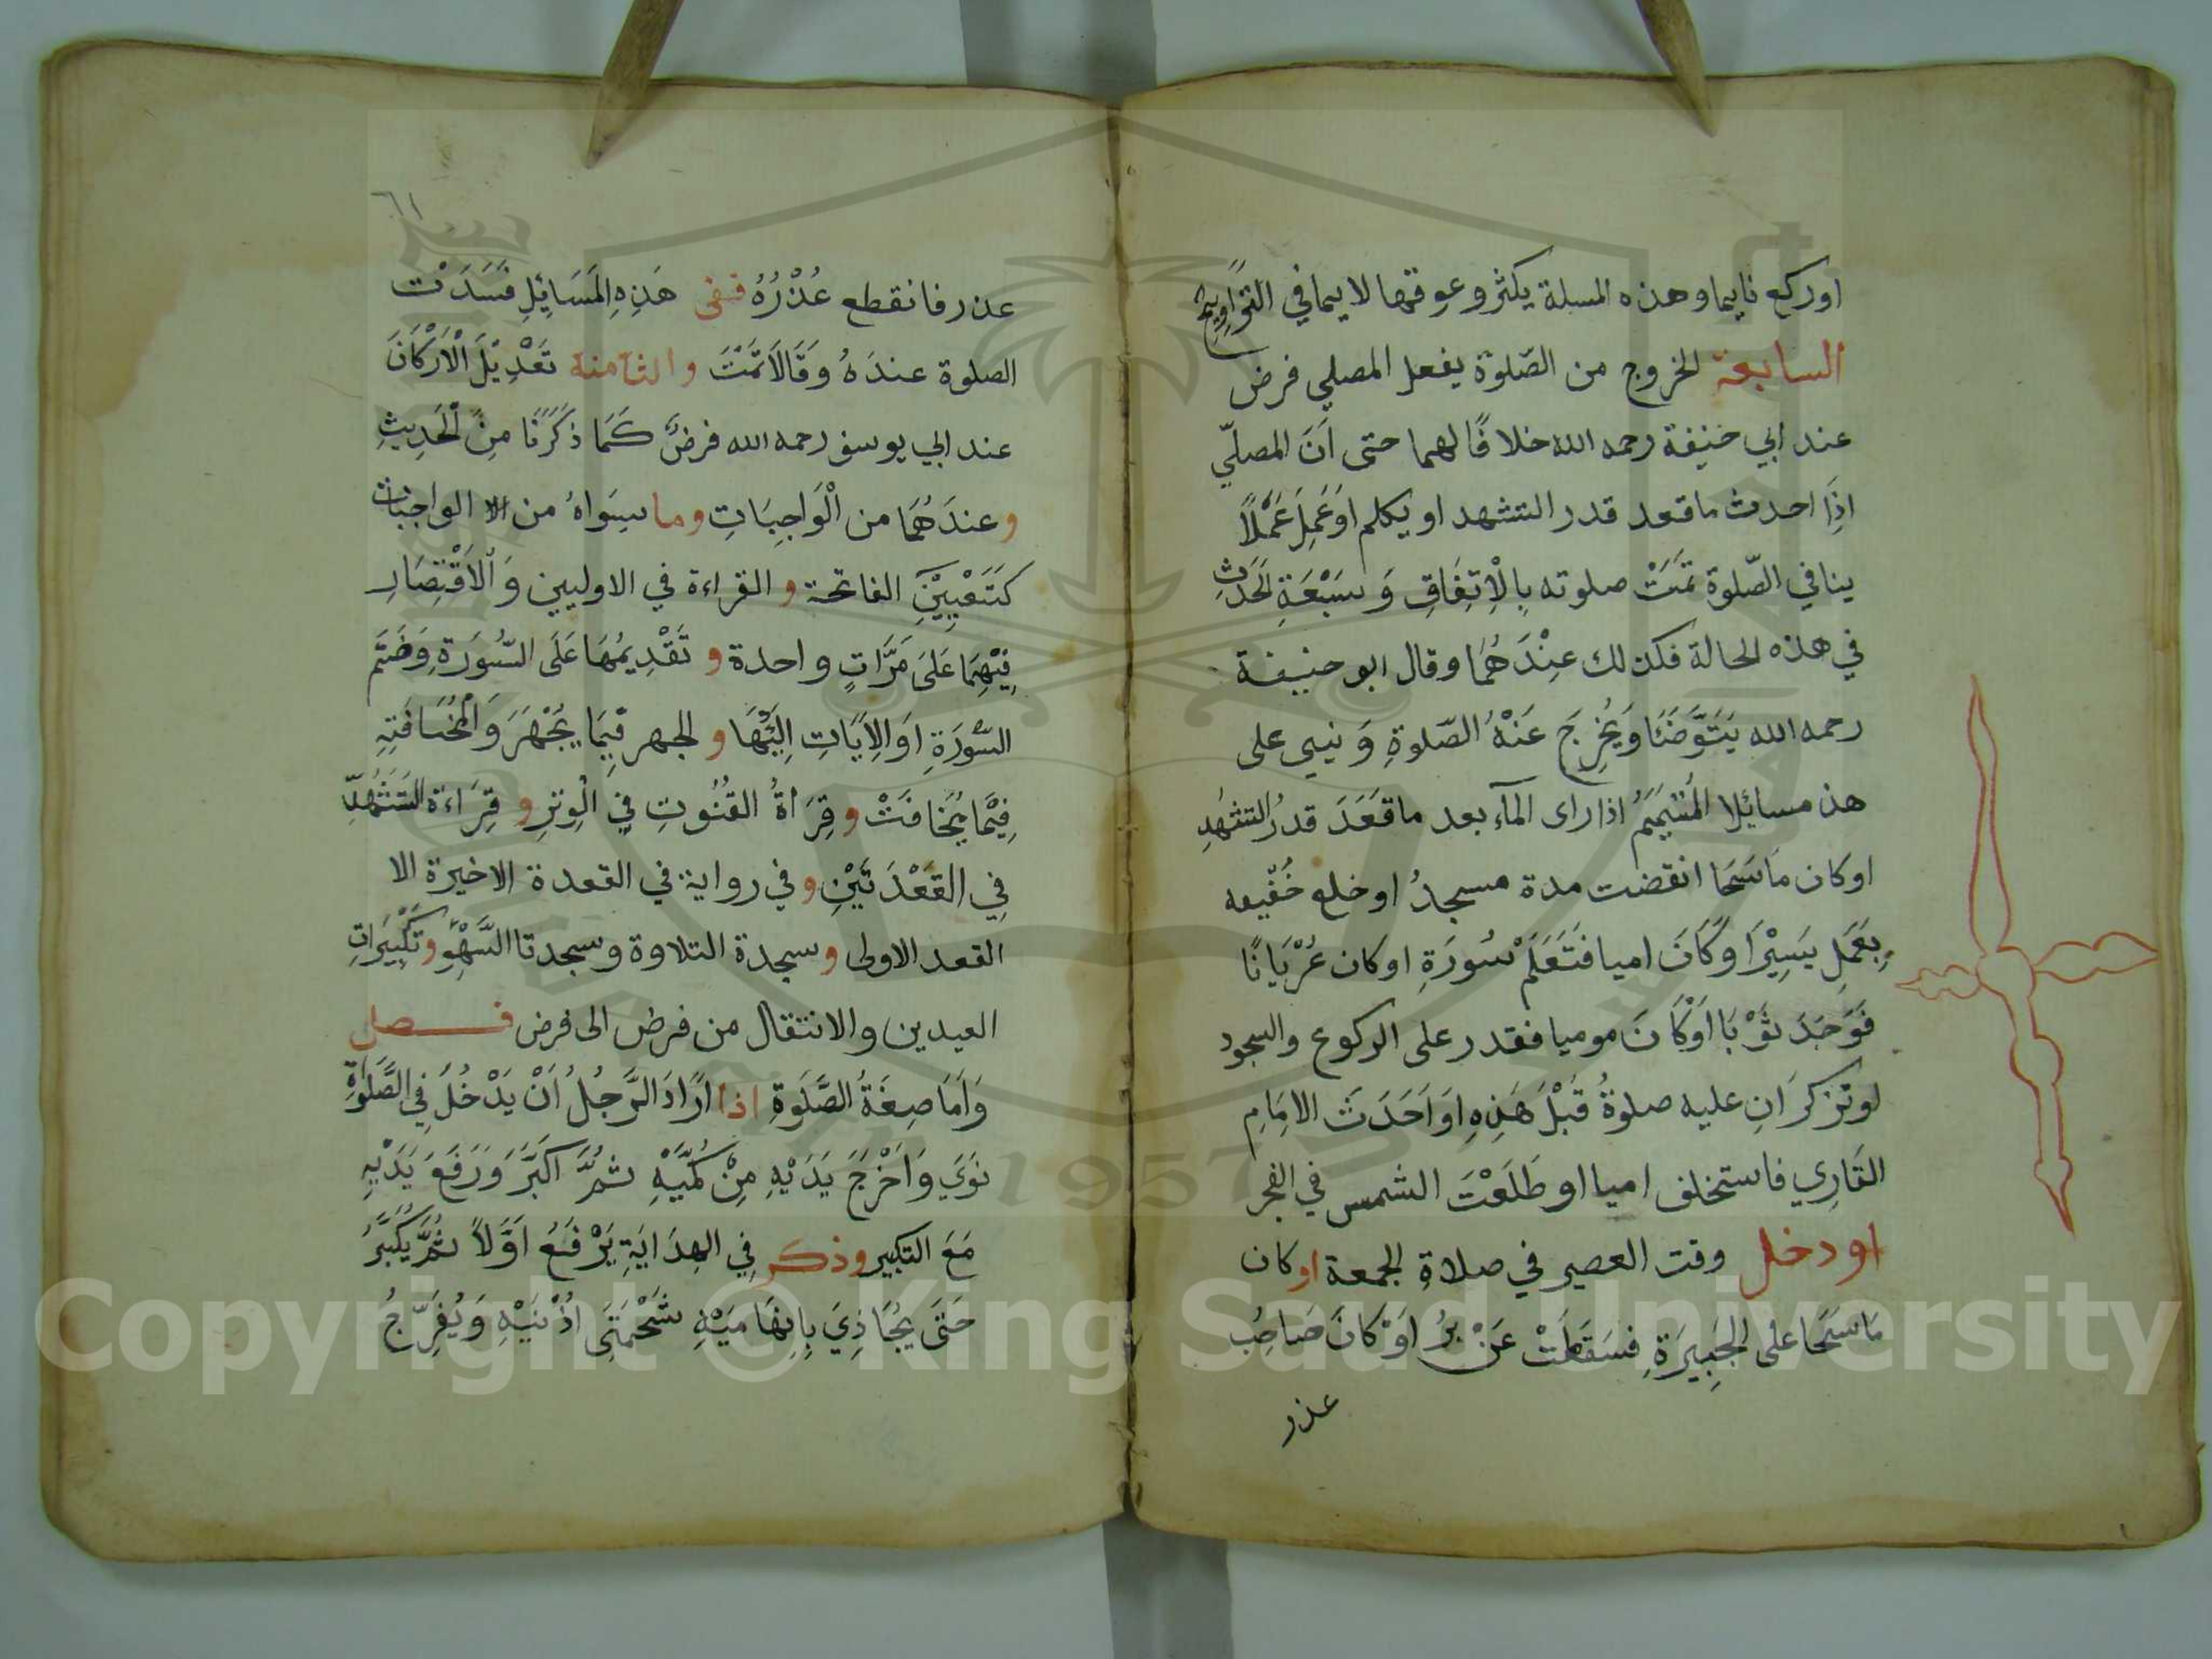 اوركع نايما وهذه المسلة يكثر وعوقها لا يما في التراويح
السابعة الخروج من الصّلوة يفعل المصلي فرض
عند ابي حنيفة رحمه الله خلافًا لهما حتى اَنَ المصلّي
اذَا احدث ما قعد قدر التشهد او يكلم اوعَمِلَ عَمَلًا
ينافي الصّلوة تمَتَتْ صلوته بِالْاِتِفَاقِ وَسَبْعَةِ الحَدَثِ
في هذه الحالة فكذلك عِنْدَهُمَا وقال ابو حنيفة
رحمه الله يَتَوَّضَئَا وَيُخِرِجَ عَنْهُ الصّلوةِ وَ نيبي على
هذ مسايئلا المُتَيَمَمُ اذا راى المآء بعد ما قَعَدَ قدرُ التشهُدِ
اوكان مَاسَحَا انقضت مدة مسجدُ اوخلع خُفّيعه
بِعَمَلِ يَسِيْرَا اوكَانَ اميا فَتَعَلَمْ سُورَةِ اوكان عُرْيَانًا
فَوَجَدَ ثَوْبَا اَوْكَانَ موميا فقدر على الركوع والسجود
لوتزكر اَنِ عليه صلوةُ قَبْلَ هَذِهِ اوَاَحَدَثَ الامَامِ
القَارِي فاستخلف اميا او طَلَعْتَ الشمس في الفجر
اودخل وقت العصير في صلاةِ الجمعة اوكان
مَاسَحَا على الجَبِيرَةِ فسَقَطَتْ عَنْ بُرُ اوَكَانَ صَاحِبُ
عذر
٦١
عذر فانقطع عُذْرُهُ ففى هَذِهِ المَسَايِئلِ فَسَدَتْ
الصلوة عندَهُ وَقَالَا تَمَتَتَ والثآمنة تَعْدِيْلَ الْاَرْكَانَ
عند ابي يوسف رحمه الله فرضٌ كَمَا ذَكَرَنَا مِنَ الْحَدِيثِ
وعندَهُمَا من الْوَاجِبَاتِ وما سِوَاهُ من الا الواجبات
كَتَعْيِيْنِ الفاتحة و القراءة في الاوليين وَالْاَقْتِصَارِ
فِيْهِمَا عَلَىَ مَرَّاتٍ واحدة و تَقْدِيمُهَا عَلَى السُّورَةِ وَضَتَم
السُّوْرَةِ اَوَالِايَاتِ اِلَيْهَا و الجهر فيَمَا يُجْهَرَ وَالْمُخَافَتِهِ
فِيْمَا يُخَافَتْ وقِرَأةُ القُنُوتِ فِي الْوِترِ و قِرَاءَة التَشَهُدِ
فِي القَعْدَتَيْنِ و في رواية في القعدة الاخيرة الا
القعد الاولى و سجدة التلاوة وسجدتا السَّهْوِ وتَكْبِيَراتِ
العيدين والانتقال من فرض الى فرض فصل
وَاَمَا صِفَةُ الصَّلَوةِ اذا ارَادَ الرَّجُلُ اَنْ يَدْخُلَ فِي الصَّلَوةِ
نَوَيَ وَاَخْرَجَ يَدَيْهِ مِنْ كُمَّيْهِ ثُمَّ اكَبَّرَ وَرَفَعَ يَدَيْهِ
مَعَ التكبير وذكر فِي الهِدَايَةِ يَرْفَعُ اَوَّلاً ثُمَّ يُكَبِّرُ
حَتَى يُجَاذِيَ بِاِبْهَامَيْهِ شَحْمَتَى اذُنَيْهِ وَيُفَرِّجُ
Copyright © King Saud University
1957